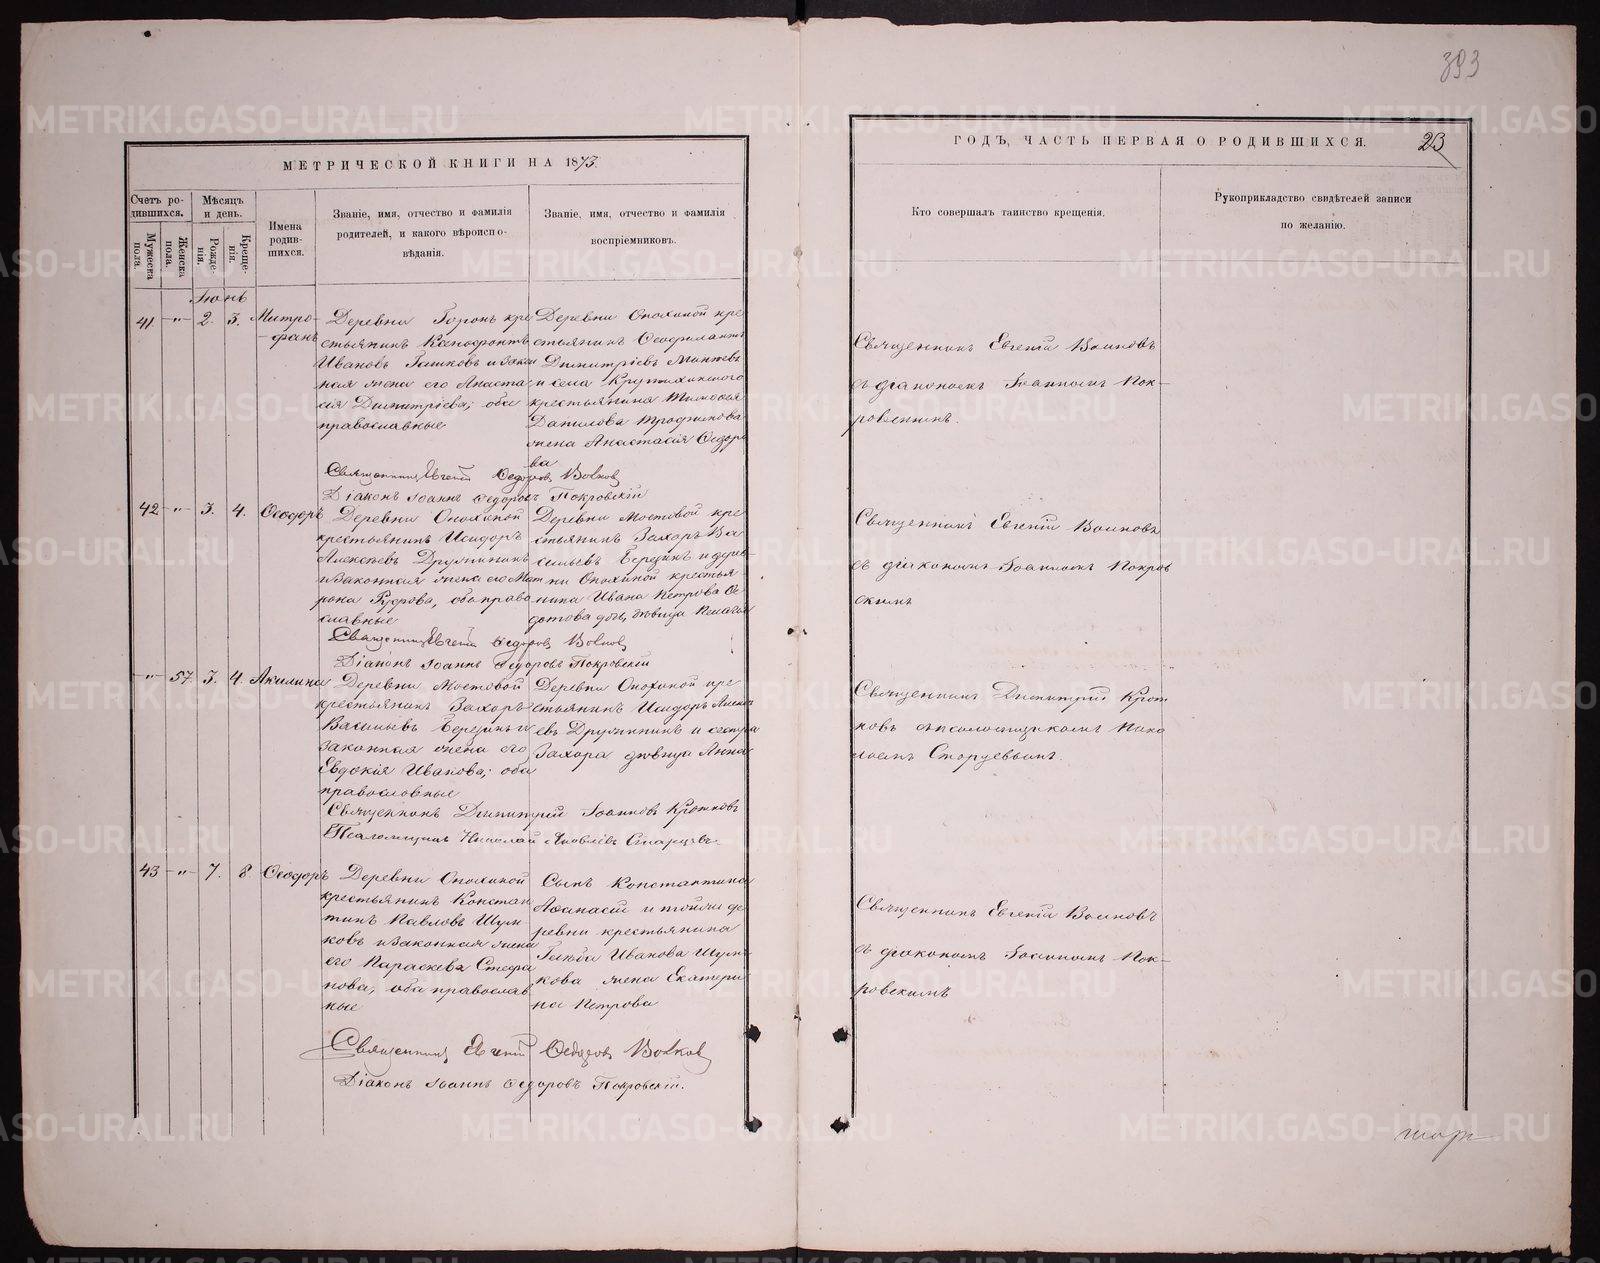 393
МЕТРИЧЕСКОЙ КНИГИ НА 1873.
ГОДЪ, ЧАСТЬ ПЕРВАЯ О РОДИВШИХСЯ.
23
Счетъ ро-
дившихся.
Мужеска
пола.
Женска
пола.
Мѣсяцъ
и день.
Рожде-
нія.
Креще-
нія.
Имена
родив-
шихся.
Званіе, имя, отчество и фамилія
родителей, и какого вѣроиспо-
вѣданія.
Званіе, имя, отчество и фамилія
воспріемниковъ.
Кто совершалъ таинство крещенія.
Рукоприкладство свидѣтелей записи
по желанію.
Іюнь
41 " 2. 3. Митро-
фанъ
Деревни кре
стьянинъ Ксенофонтъ
Ивановъ и закон
ная жена его Анаста
сія Димитріева; оба
православные
Деревни Опохиной кре
стьянинъ Феофилактъ
Димитріевъ
и села Крутихинскаго
крестьянина
Данилова Трофимова
жена Анастасія Ѳедоро
ва
Священникъ Евгеній Волковъ
съ діакономъ Іоанномъ Пок-
ровскимъ.
Священникъ Евгеній Ѳедоровъ Волковъ
Діаконъ Іоаннъ Ѳедоровъ Покровскій
42 " 3. 4. Ѳеодоръ
Деревни Опохиной
крестьянинъ Исидоръ
Алексѣевъ Дружининъ
и законная жена его Мат
рона оба право
славные
Деревни Мостовой кре
стьянинъ Захаръ Ва
сильевъ Бердинъ и дерев
ни Опохиной крестья
нина Ивана Петрова Ѳе
дотова дочь, дѣвица Пелагія
Священникъ Евгеній Волковъ
съ діакономъ Іоанномъ Покров
скимъ
Священникъ Евгеній Ѳедоровъ Волковъ
Діаконъ Іоаннъ Ѳедоровъ Покровскій
" 57 3. 4. Акилина
Деревни Мостовой
крестьянинъ Захаръ
Васильевъ Бердинъ и
законная жена его
Евдокія Иванова; оба
православные
Деревни Опохиной кре
стьянинъ Исидоръ Алексѣ
евъ Дружининъ и сестра
Захара дѣвица Анна
Священникъ Димитрій Крот
ковъ съ псаломщикомъ Нико
лаемъ Старцевымъ.
Священникъ Димитрій Іоанновъ Кротковъ
Псаломщикъ Николай Яковлевъ Старцевъ.
43 " 7. 8. Ѳеодоръ
Деревни Опохиной
крестьянинъ Констан
тинъ Павловъ Шум
ковъ и законная жена
его Параскева Стефа
нова, оба православ
ные
Сынъ Константина
Афанасій и тойже де
ревни крестьянина
Глѣба Иванова Шум
кова жена Екатери
на Петрова
Священникъ Евгеній Волковъ
съ діакономъ Іоанномъ Пок-
ровскимъ
Священникъ Евгеній Ѳедоровъ Волковъ
Діаконъ Іоаннъ Ѳедоровъ Покровскій.
METRIKI.GASO-URAL.RU